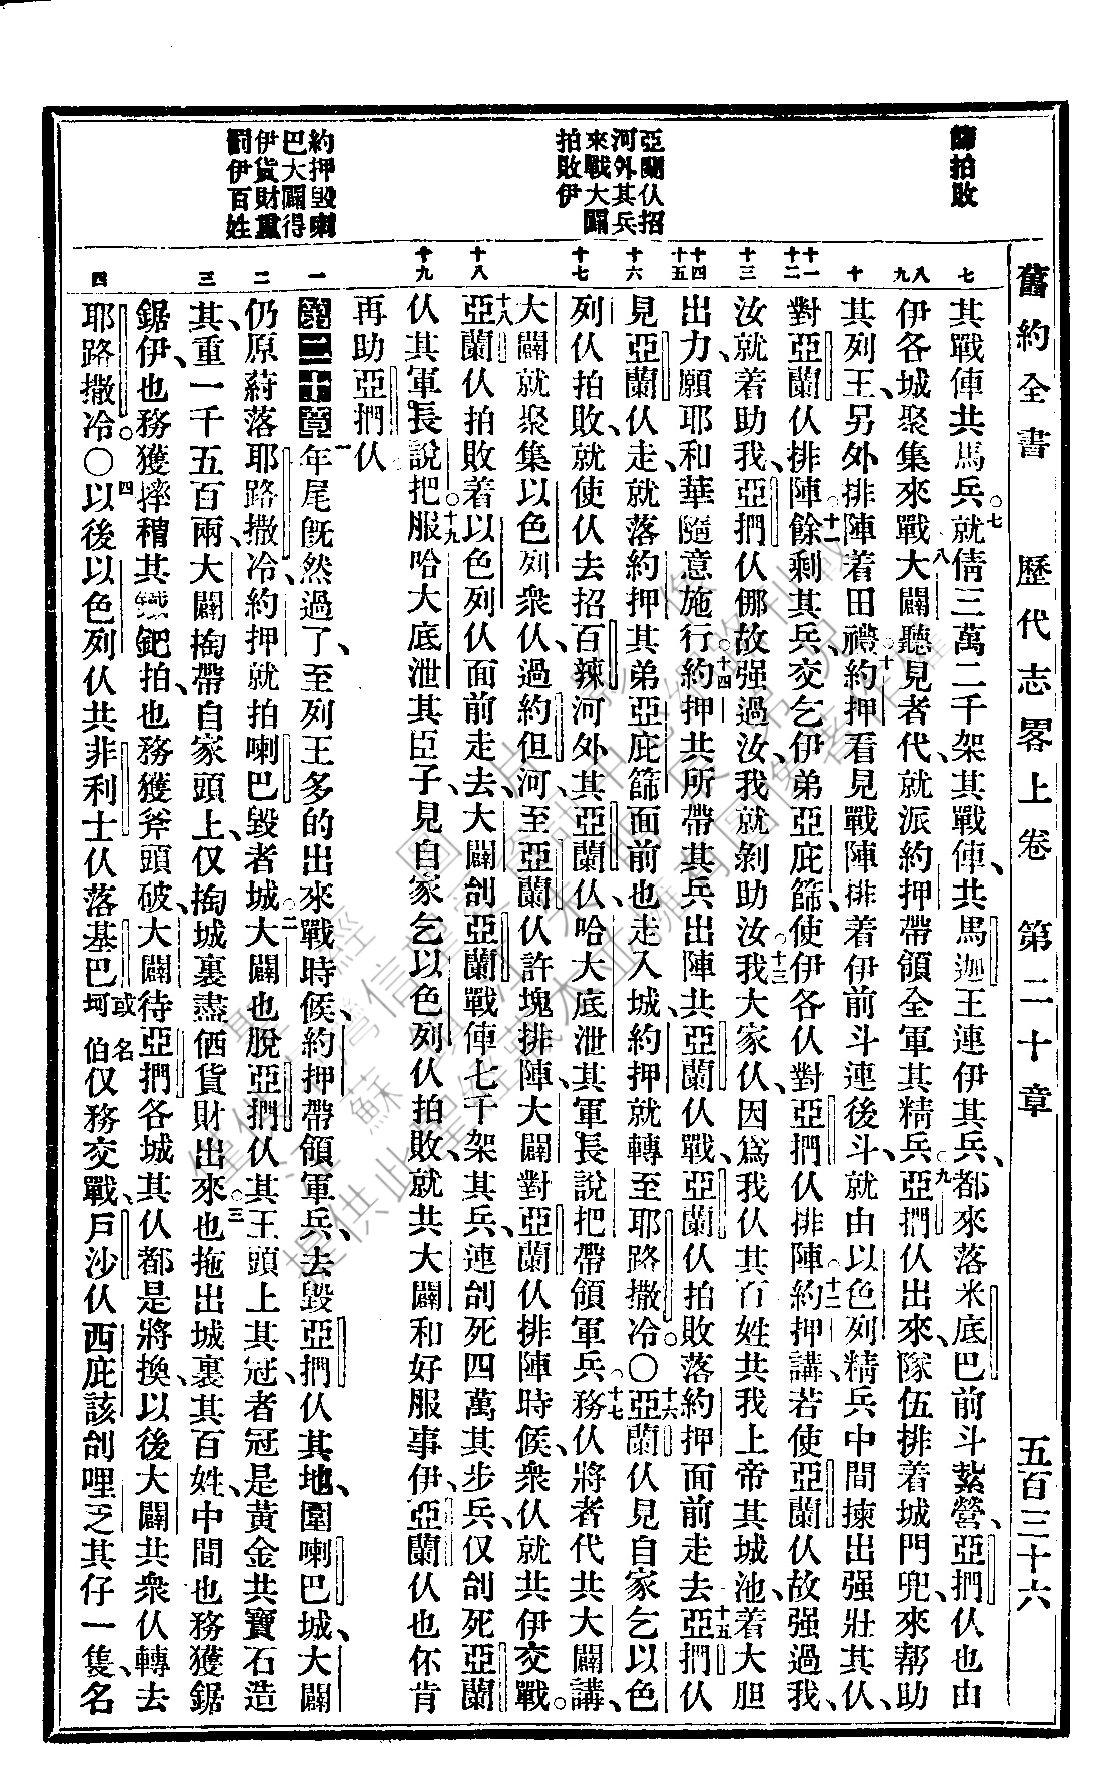 舊約全書　歷代志畧上卷　第二十章　五百三十六
篩拍敗
亞蘭仈招
河外其兵
來戰大闢
拍敗伊
約押毀喇
巴大闢得
伊貨財重
罰伊百姓
七
八九
十
十一十二
十三
十四十五
十六
十七
十八
十九
一
二
三
四
其戰俥共馬兵。七就倩三萬二千架其戰俥、共馬迦王連伊其兵、都來落米底巴前斗紮營、亞捫仈也由
伊各城聚集來戰八大闢聽見者代、就派約押帶領全軍其精兵。九亞捫仈出來、隊伍排着城門兜、來幫助
其列王、另外排陣着田禯。十約押看見戰陣排着伊前斗連後斗、就由以色列精兵中間揀出强壯其仈、
對亞蘭仈排陣。十一餘剩其兵、交乞伊弟亞庇篩、使伊各仈對亞捫仈排陣。十二約押講、若使亞蘭仈故强過我、
汝就着助我、亞捫仈㑚故强過汝、我就剝助汝。十三我大家仈、因爲我仈其百姓共我上帝其城池、着大胆
出力、願耶和華隨意施行。十四約押共所帶其兵出陣共亞蘭仈戰、亞蘭仈拍敗落約押面前走去、十五亞捫仈
見亞蘭仈走、就落約押其弟亞庇篩面前也走入城、約押就轉至耶路撒冷。〇十六亞蘭仈見自家乞以色
列仈拍敗、就使仈去招百辣河外其亞蘭仈、哈大底泄其軍長說把帶領軍兵。十七務仈將者代共大闢講、
大闢就聚集以色列衆仈、過約但河、至亞蘭仈許塊排陣、大闢對亞蘭仈排陣時候、衆仈就共伊交戰。
十八亞蘭仈拍敗着以色列仈面前走去、大闢刣亞蘭戰俥七千架其兵、連刣死四萬其步兵、仅刣死亞蘭
仈其軍長說把。十九服哈大底泄其臣子、見自家乞以色列仈拍敗、就共大闢和好服事伊、亞蘭仈也伓肯
再助亞捫仈
第二十章一年尾旣然過了、至列王多的出來戰時候、約押帶領軍兵、去毀亞捫仈其地、圍喇巴城、大闢
仍原蒔落耶路撒冷、約押就拍喇巴毀者城。二大闢也脫亞捫仈其王頭上其冠、者冠是黃金共寶石造
其、重一千五百兩、大闢掏帶自家頭上、仅掏城裏盡価貨財出來。三也拖出城裏其百姓、中間也務獲鋸
鋸伊、也務獲摔稽其鈀拍、也務獲斧頭破、大闢待亞捫各城其仈都是將換、以後大闢共衆仈轉去
耶路撒冷。〇四以後以色列仈共非利士仈落基巴或名坷伯仅務交戰、戶沙仈西庇該刣哩乏其仔一隻、名